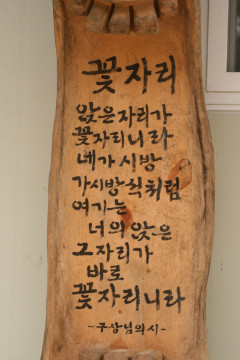 꽃자리
앉은자리가
꽃자리니라
네가시방
가시방석처럼
여기는
너의앉은
그자리가
바로
꽃자리니라
-구상님의시-